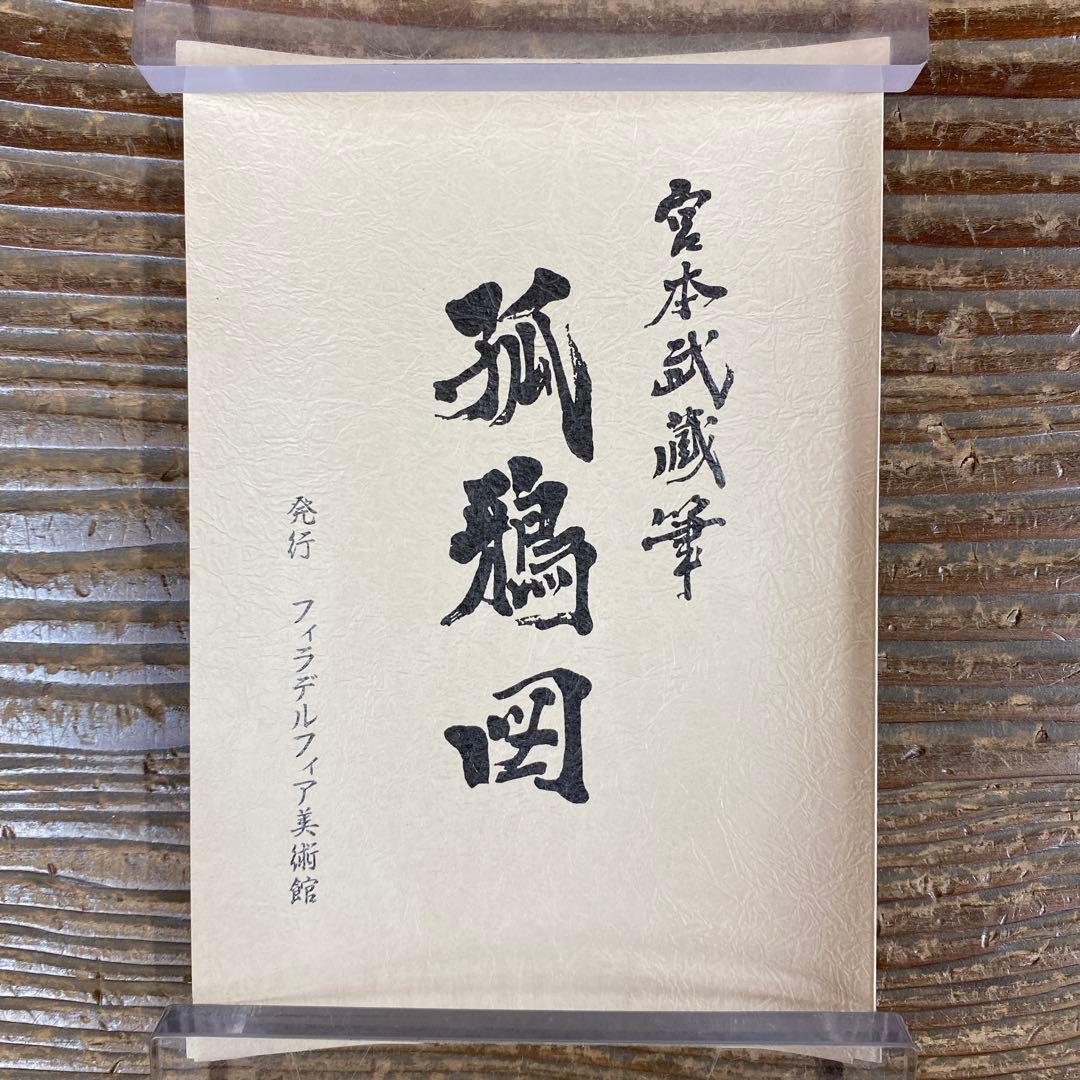 宮本武蔵筆
孤鴉図
発行 フィラデルフィア美術館